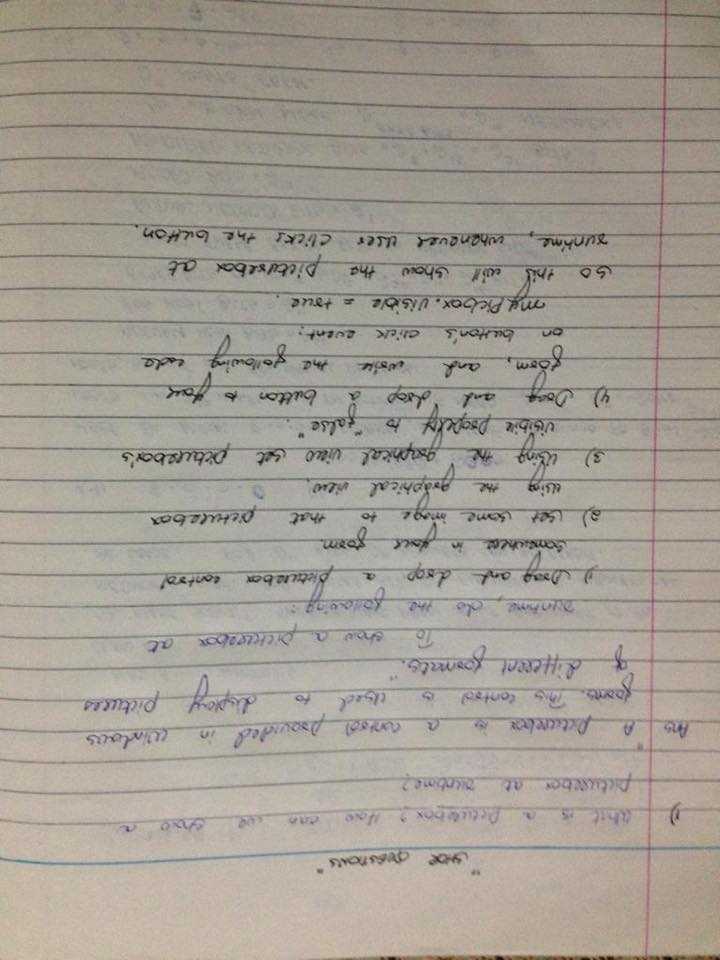 "SHOR QUESTIONS"
1) What is a picturebox? How can we show a
picturebox at runtime?
Ans "A picturebox is a control provided in windows
forms. This control is used to display pictures
of different formats."
To show a picturebox at
runtime, do the following:
1) Drag and drop a picturebox control
somewhere in your form
2) Set some image to that picturebox
using the graphical view.
3) Using the graphical view set picturebox's
visible property to "false".
4) Drag and drop a button to your
form, and write the following code
on button's click event:
myPicbox.visible = true.
so this will show the picturebox at
runtime, whenever user clicks the button.